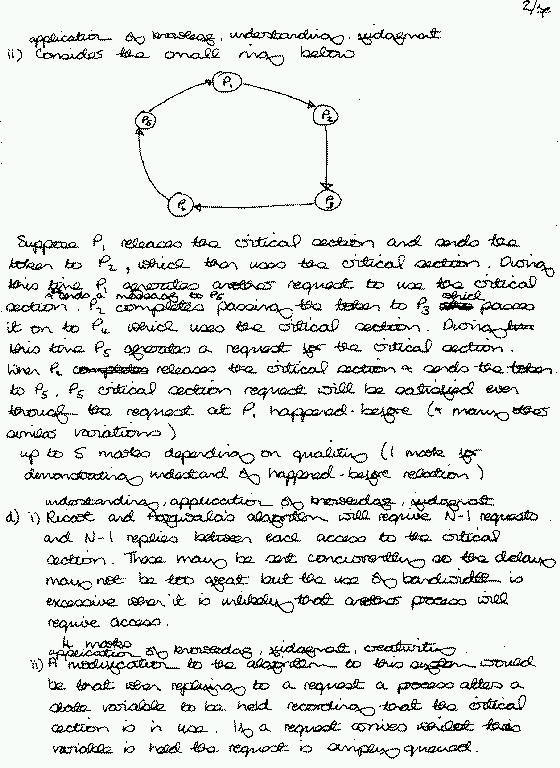 2/
application of knowledge, understanding, judgement
ii) Consider the small ring below
P1
P5
P2
P4
P3
Suppose P1 releases the critical section and sends the
token to P2, which then uses the critical section. During
this time P1 generates another request to use the critical
& sends a message to P5
section. P2 completes passing the token to P3 which passes
it on to P4 which uses the critical section. During
this time P5 generates a request for the critical section.
When P4 releases the critical section & sends the token
to P5, P5 critical section request will be satisfied even
through the request at P1 happened-before (& many other
similar variations)
up to 5 marks depending on quality (1 mark for
demonstrating understand of happened-before relation)
understanding, application of knowledge, judgement
d) i) Ricart and Agrawala's algorithm will require N-1 requests
and N-1 replies between each access to the critical
section. These may be sent concurrently so the delay
may not be too great but the use of bandwidth is
excessive when it is unlikely that another process will
require access.
4 marks
application of knowledge, judgement, creativity
ii) A modification to the algorithm to this system would
be that when replying to a request a process alters a
state variable to be held recording that the critical
section is in use. If a request arrives whilst this
variable is held the request is simply queued.